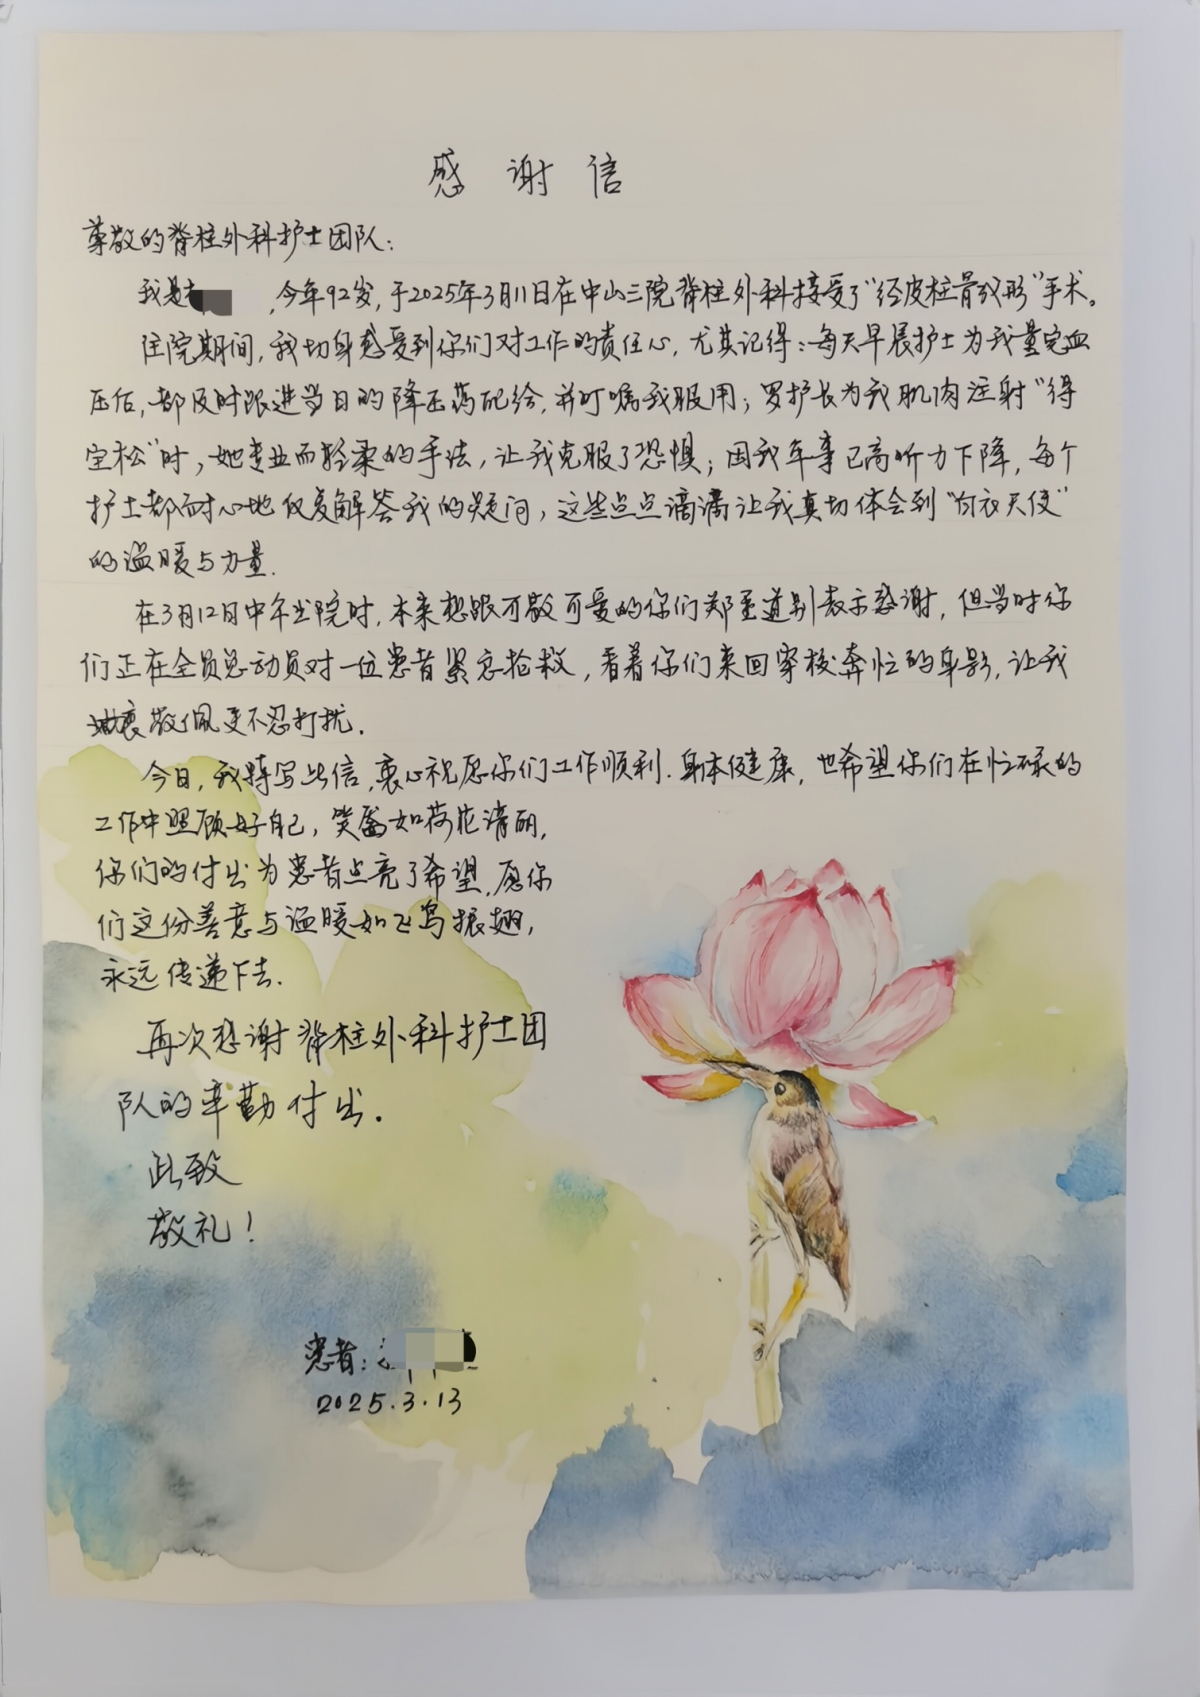 感谢信
尊敬的脊柱外科护士团队:
我是 ,今年92岁,于2025年3月11日在中山三院脊柱外科接受了"经皮椎骨成形"手术。
住院期间,我切身感受到你们对工作的责任心,尤其记得:每天早晨护士为我量完血
压后,都及时跟进当日的降压药配给,并叮嘱我服用;罗护长为我肌肉注射"得
宝松"时,她专业而轻柔的手法,让我克服了恐惧;因我年事已高听力下降,每个
护士都耐心地反复解答我的疑问,这些点点滴滴让我真切体会到"白衣天使"
的温暖与力量.
在3月12日中午出院时,本来想跟可敬可爱的你们郑重道别表示感谢,但当时你
们正在全员总动员对一位患者紧急抢救,看着你们来回穿梭奔忙的身影,让我
敬佩更不忍打扰.
今日,我特写此信,衷心祝愿你们工作顺利.身体健康,也希望你们在忙碌的
工作中照顾好自己,笑靥如荷花清丽,
你们的付出为患者点亮了希望,愿你
们这份善意与温暖如飞鸟振翅,
永远传递下去.
再次感谢脊柱外科护士团
队的辛勤付出.
此致
敬礼!
患者:
2025.3.13